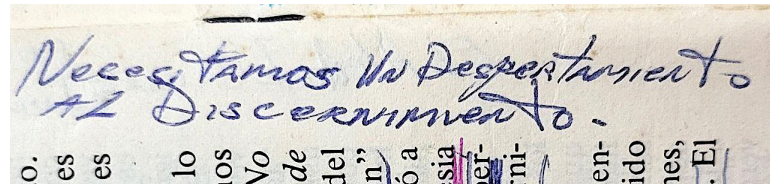 Necesitamos Un Despertamiento
AL DISCERNIMIENTO.
o.
es
es
lo
nos
No
de
del
n”
ó a
esia
per-
rni-
en-
ido
nes,
. El